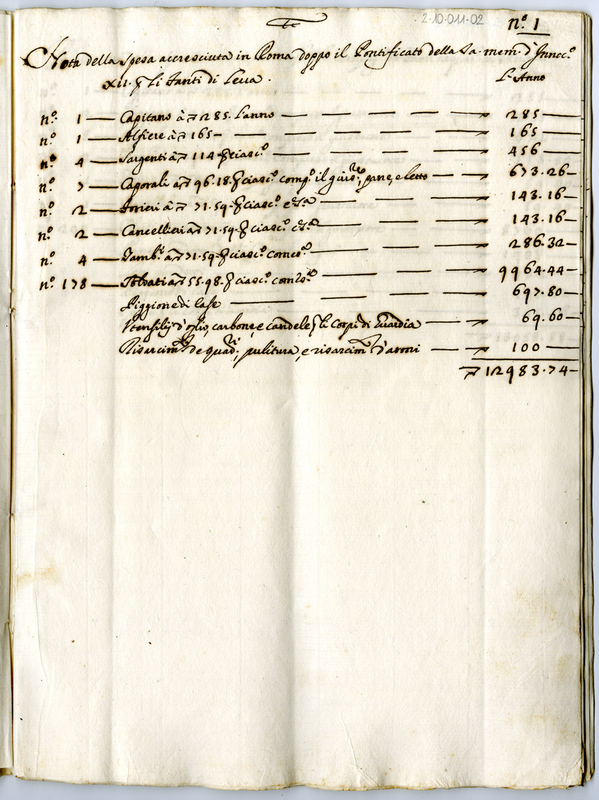 2-10-011-02
nº. 1
Nota della spesa accresciuta in Roma doppo il Pontificato della Sa. mem. d'Innocº.
XII. per li fanti di Leva.
L'Anno
nº. 1 — Capitano à 285. l'anno — 285 —
nº. 1 — Alfiere à 165 — 165 —
nº. 4 — Sargenti à 114 per ciascº. — 456 —
nº. 7 — Caporali à 96.18. per ciascº. compº. il quarº., pane, e letto — 673.26 —
nº. 2 — Forieri à 71.59. per ciascº. — 143.16 —
nº. 2 — Cancellieri à 71.59. per ciascº. — 143.16 —
nº. 4 — Tambⁱ. à 71.59. per ciascº. — 286.32 —
nº. 178 — Soldati à 55.98. per ciascº. — 9964.44 —
Piggione di Case — 697.80 —
Utensilij d'oglio, carbone e candele per li Corpi di Guardia — 69.60 —
Risarcimᵗⁱ de quarⁱ., pulitura, e risarcimᵗⁱ d'armi — 100 —
12983.74 —